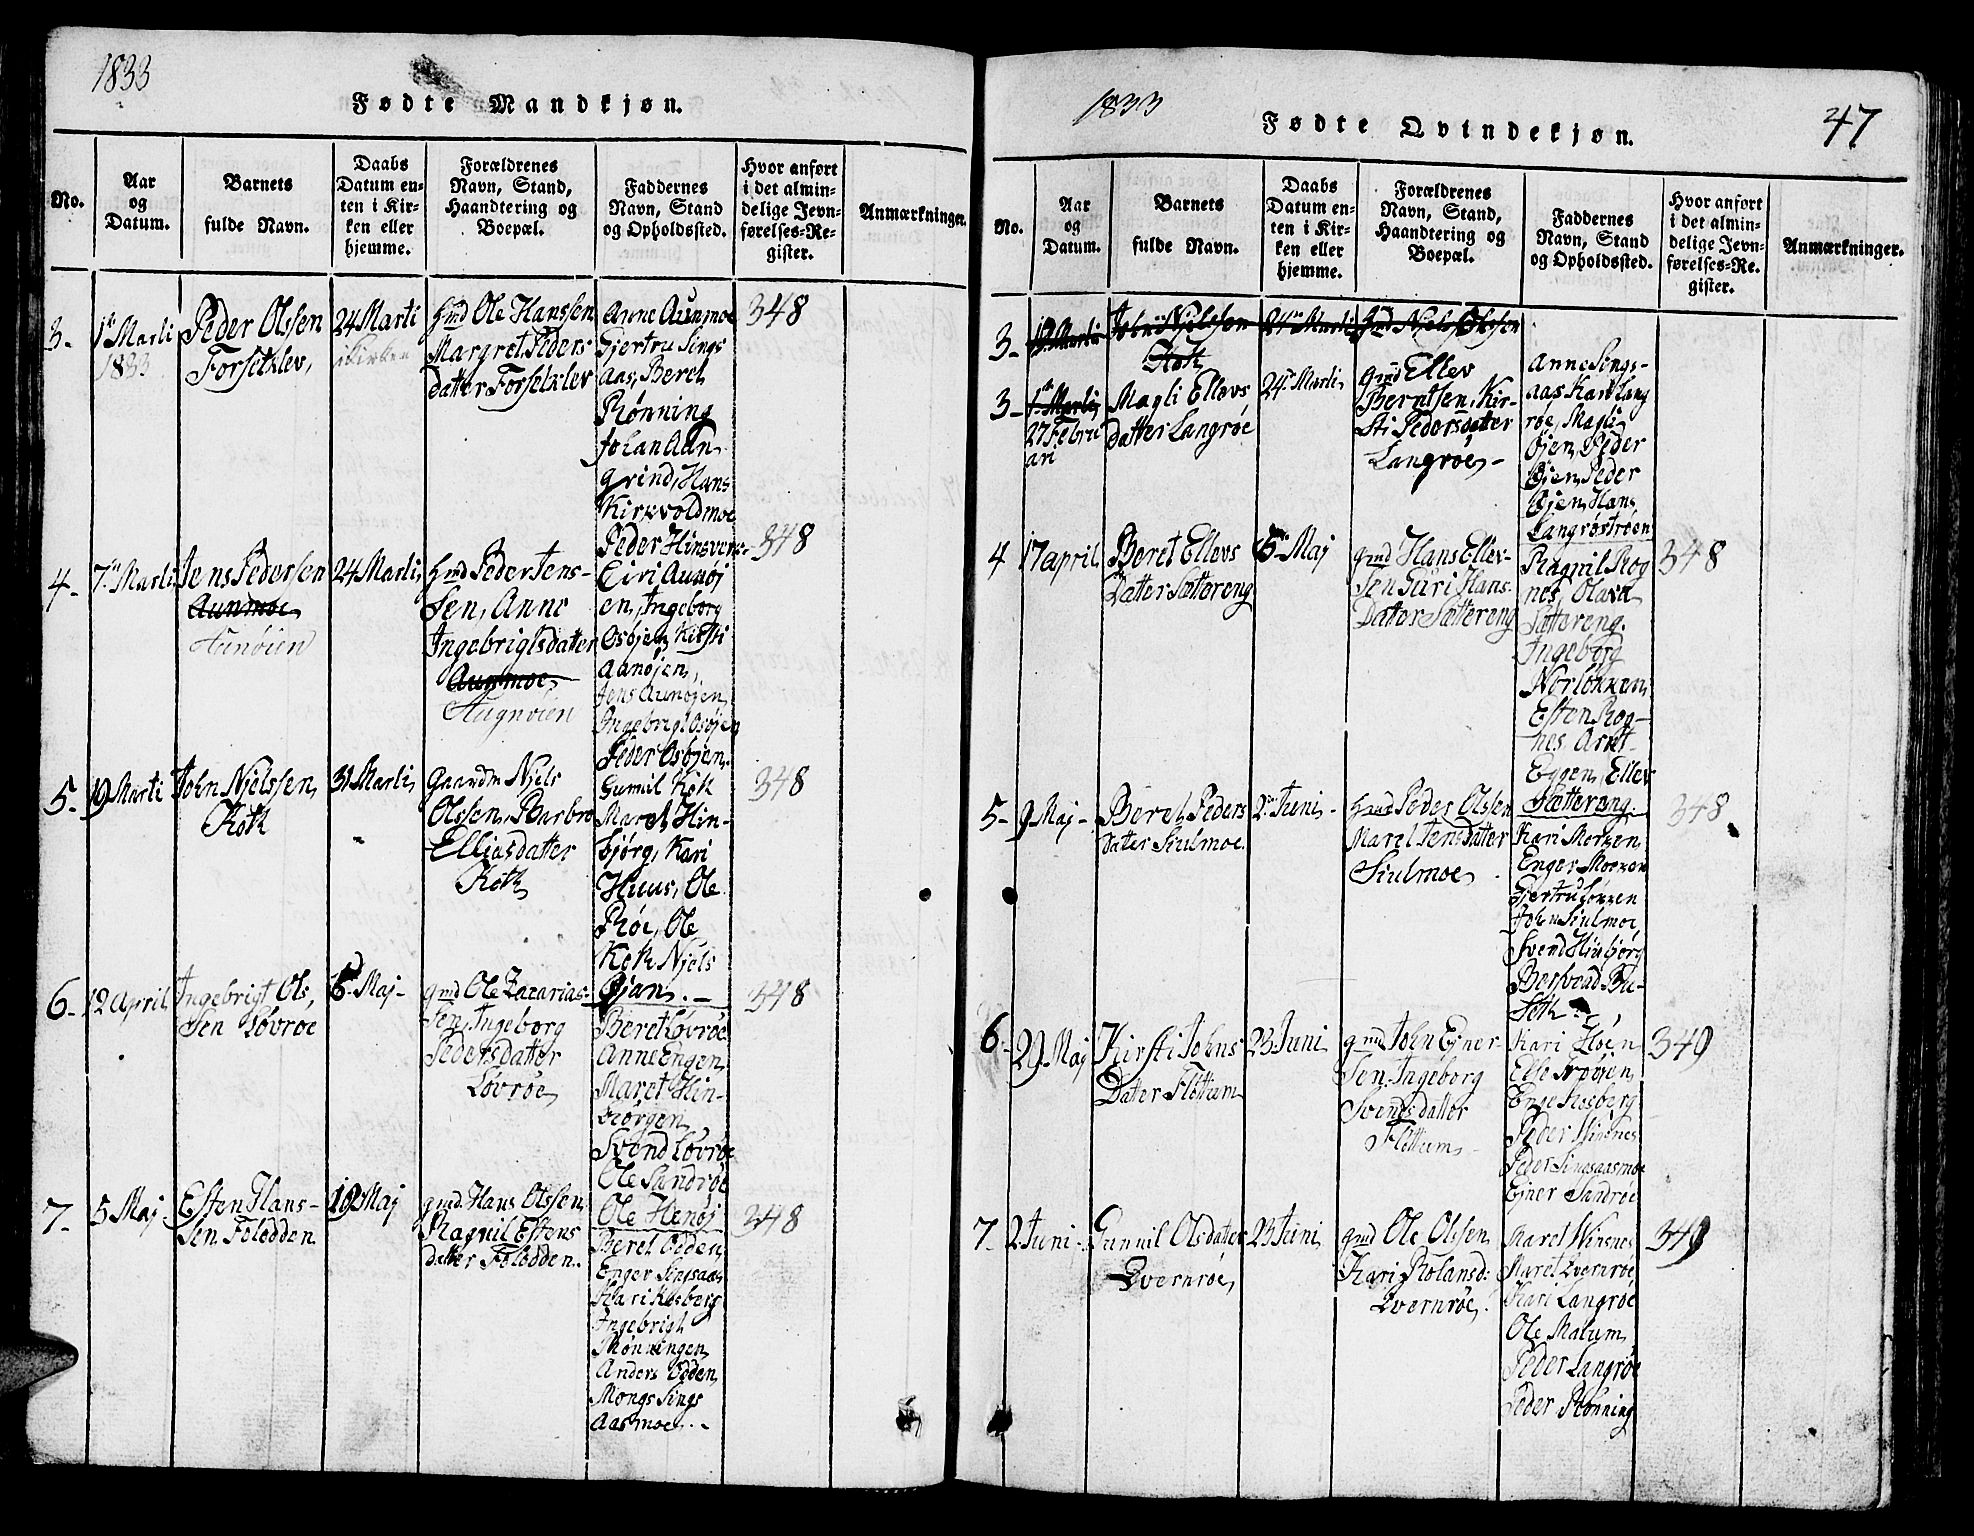 1833
Fødte Mandkjøn.
No.
Aar
og
Datum.
Barnets
fulde Navn.
Daabs
Datum en-
ten i Kir-
ken eller
hjemme.
Forældrenes
Navn, Stand,
Haandtering og
Boepæl.
Faddernes
Navn, Stand
og Opholdssted.
Hvor anført
i det almin-
delige Jevn-
førelses-Re-
gister.
Anmærkninger.
3-
1te Marti
1833
Peder Olssen
Forsetklev,
24 Marti
i Kirken
Hmd Ole Hanssen
Margret Peders-
datter Forsetklev
Anne Aunmoe
Gjertru Sings
aas, Beret
Rønning
Johan Aun
grind, Hans
Kirkvoldmoe
Peder Hinsverk
348
4-
7de Marti
Jens Pedersen
Aunmoe
Aunøien
24 Marti
Hmd Peder Jens-
sen, Anne
Ingebrigtsdatter
Aunmoe
Augnøien
Ciri Aunøj
en, Ingeborg
Osøjen, Kirsti
Aanøjen,
Jens Aunøjen
Ingebrigt Osøjen
Peder Osøjen
348
5-
19 Marti
John Njelssen
Kotk
31 Marti
Gaardm Njels
Olssen, Barbro
Elliasdatter
Kotk
Gumil Kok
Maret Hin-
bjørg, Kari
Huus, Ole
Røe, Ole
Kotk Njels
Bjan.-
348
6-
12 April
Ingebrigt Ols,
sen Løvrøe
5 Maj-
gmd Ole Zacarias-
sen, Ingeborg
Pedersdatter
Løvrøe
Beret Løvrøe
Anne Engen
Maret Hin-
børgen
Svend Løvrøe
Ole Sandrøe
Ole Henøj
348
7-
5 Maj
Esten Hans-
sen Folodden
19 Maj
gmd. Hans Olssen
Ragnil Estens
datter Folodden.
Beret Odden
Enger Singsaas
Kari Kosberg
Ingebrigt
Rønningen
Anders Odden
Mongs Sings
Aasmoe.-
348
1833
Fødte Qvindekjøn.
47
No.
Aar
og
Datum.
Barnets
fulde Navn.
Daabs
Datum en-
ten i Kir-
ken eller
hjemme.
Forældrenes
Navn, Stand,
Haandtering og
Boepæl.
Faddernes
Navn, Stand
og Opholdssted.
Hvor anført
i det almin-
delige Jevn-
førelses-Re-
gister.
Anmærkninger.
3-
19 Marti
John Njelssen
Kotk
Gmd Njels Olssen
3-
1te Marti
27 Febru
ari
Magli Ellevs
datter Langrøe
24de Marti
gmd Ellev
Berntsen, Kir-
sti Pedersdatter
Langrøe-
Anne Sings-
aas Kari Lang
røe, Magli
Øjen, Peder
Øjen, Peder
Øjen, Hans
Langrøstrøen
4
17 april
Beret Ellevs
Datter Sættereng
5te Maj
gmd Hans Ellev-
sen Guri Hans-
Datter Sættereng
Ragnil Rog
nes, Olava
Sættereng.
Ingeborg
Norløkken
Esten Rog-
nes Arnt
Eggen, Ellev
Sættereng.
348
5-
9 Maj-
Beret Peders
datter Siulmoe.
2den Juni-
Hmd Peder Olssen
Maret Jensdatter
Siulmoe
Kari Morken
Enger Morken
Gjertru Løkken
John Siulmoe
Svend Hinbjørg
Bersvend Bu-
setk
348
6-
29 Maj
Kirsti Johns
Dater Flottum
23 Juni
gmd John Ejner-
sen Ingeborg
Svendsdatter
Flottum-
Kari Høen
Else Trøøjen
Enge Kosberg
Peder Winsnes
Peder Singsaasmoe
Ejner Sandrøe
349
7-
2 Juni-
Gunnil Olsdatter
Qvernrøe
23 Juni
gmd Ole Olssen
Kari Rolandsd:
Qvernrøe.
Maret Winsnes
Maret Qvernrøe
Kari Langrøe
Ole Malum
Peder Langrøe
Peder Rønning
349